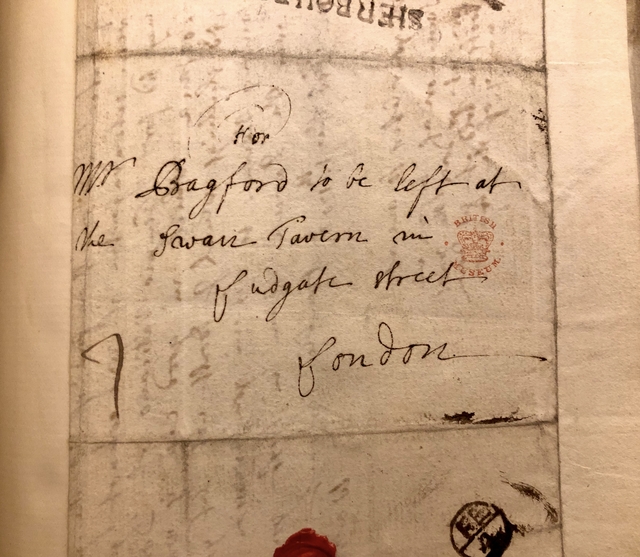 SHERBOU
For
Mr Bagford to be left at
the Swan Tavern in
Ludgate street
London
BRITISH
MUSEUM
7
FE